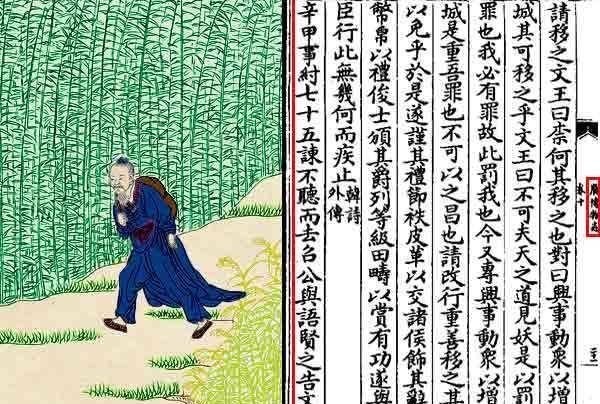 廣博物志
卷十
請移之文王曰柰何其移之也對曰興事動衆以增
城其可移之乎文王曰不可夫天之道見妖是以罰
罪也我必有罪故此罰我也今又專興事動衆以增
城是重吾罪也不可以之昌也請改行重善移之其
以免乎於是遂謹其禮節袟皮革以交諸侯飾其辭
幣帛以禮俊士頒其爵列等級田疇以賞有功遂與
臣行此無幾何而疾止韓詩外傳
辛甲事紂七十五諫不聽而去召公與語賢之告文